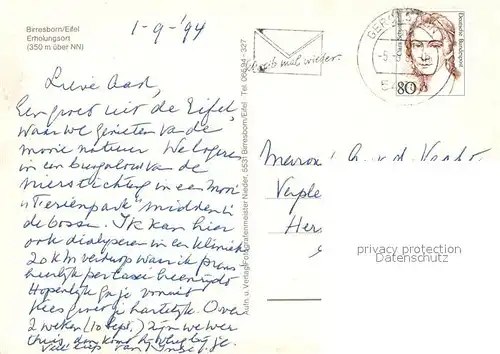 Birresborn/Eifel
Erholungsort
(350 m über NN)
1-9-'94
Lieve Aad,
Een groet uit de Eifel,
waar we genieten van de
mooie natuur. We logeren
in een bungalow van de
Nierstichting in een mooi
"Ferienpark" midden in
de bossen. Ik kan hier
ook dialyseren in een kliniek
20 km verderop waar ik
heerlijk per taxi heen rijd
Hopelijk ga je vooruit
Kees groet je hartelijk. Over
2 weken (10 sept.) zijn we weer
thuis, dan kom ik weer bij je.
Veel liefs van
Auth. u. Verlag Fotografenmeister Nieder, 5531 Birresborn/Eifel Tel. 06594-327
Schreib mal wieder.
GEROLSTEIN
54
Deutsche Bundespost
Clara Schumann
80
Mevrouw A. v.d.
Verple
Her
privacy protection
Datenschutz